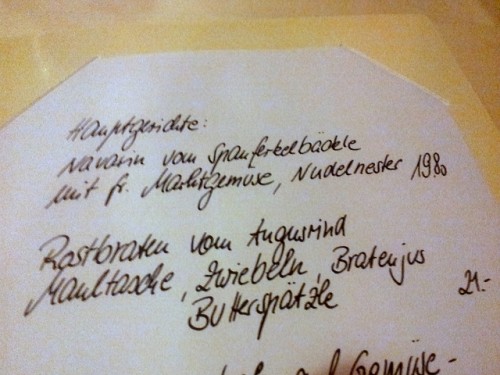 Hauptgerichte:
Navarin vom Spanferkelbäckle
mit fr. Marktgemüse, Nudelnester 19,80
Rostbraten vom Angusrind
Maultasche, Zwiebeln, Bratenjus
Butterspätzle 21.-
und Gemüse-